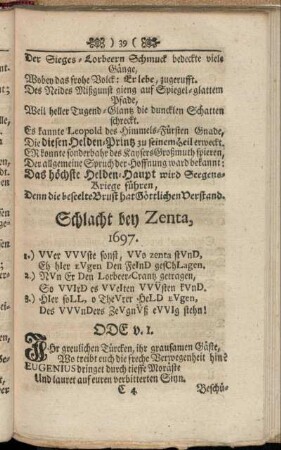 ) 39 (
Der Sieges-Lorbeern Schmuck bedeckte viele
Gänge,
Wobey das frohe Volck: Er lebe, zugerufft.
Des Neides Mißgunst gieng auf Spiegel-glattem
Pfade,
Weil heller Tugend-Glantz die duncklen Schatten
schreckt.
Es kannte Leopold des Himmels-Fürsten Gnade,
Die diesen Helden-Printz zu seinem Heil erweckt.
ER konnte sonderbahr des Kaysers Großmuth spieren,
Der allgemeine Spruch der Hoffnung ward bekannt:
Das höchste Helden-Haupt wird Seegens-
Kriege führen,
Denn die beseelte Brust hat Göttlichen Verstand.
Schlacht bey Zenta,
1697.
1.) VVer VVVste sonst, VVo zenta stVnD,
Eh hIer eVgen Den FeInD gesChLagen.
2.) NVn Er Den Lorbeer-Crantz getragen,
So VVIrD es VVeIten VVVsten kVnD.
3.) HIer soLL, o TheVrer HeLD eVgen,
Des VVVnDers ZeVgnVß eVVIg stehn!
ODE v. I.
Ihr greulichen Türcken, ihr grausamen Gäste,
Wo treibt euch die freche Verwegenheit hin?
EUGENIUS dringet durch tieffe Moräste
Und lauret auf euren verbitterten Sinn.
C 4 Beschü-